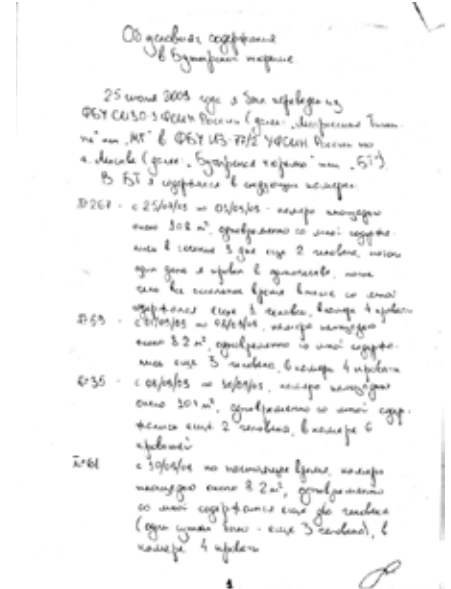 Об условиях содержания
в Бутырской тюрьме
25 июля 2009 года я был переведен из
ФБУ СИЗО-3 ФСИН России (далее - "Матросская Тиши-
на" или "МТ" в ФБУ ИЗ-77/2 УФСИН России по
г. Москве (далее - "Бутырская тюрьма" или "БТ").
В БТ я содержался в следующих камерах:
№267 - с 25/07/09 по 01/09/09 - камера площадью
около 10.8 м², одновременно со мной содержа-
лись в течение 3 дня еще 2 человека, потом
один день я провел в одиночестве, после
чего все остальное время вместе со мной
содержался еще 1 человек, в камере 4 кровати
№59 - с 01/09/09 по 08/09/09, камера площадью
около 8.2 м², одновременно со мной содержа-
лись еще 3 человека, в камере 4 кровати
№35 - с 08/09/09 по 10/09/09, камера площадью
около 10.1 м², одновременно со мной содер-
жались еще 2 человека, в камере 6
кроватей
№61 с 10/09/09 по настоящее время, камера
площадью около 8.2 м², одновременно
со мной содержатся еще два человека
(один сутки было - еще 3 человека), в
камере 4 кровати
1